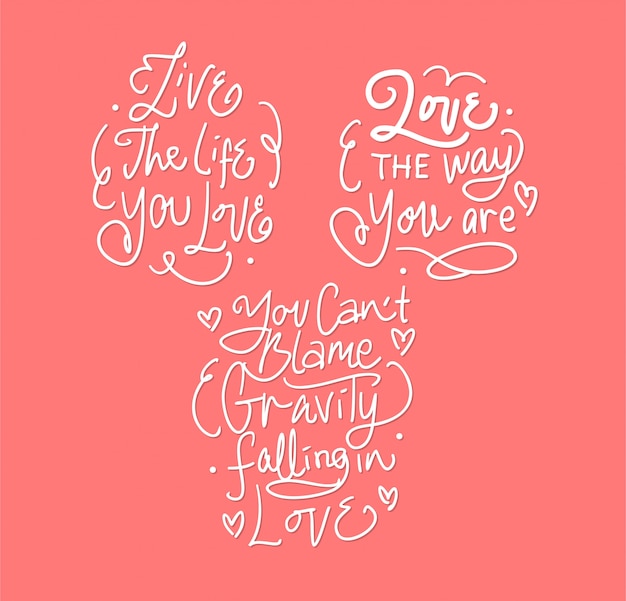 Live
The Life
You Love
Love
THE way
You are
You Can't
Blame
Gravity
falling in
Love